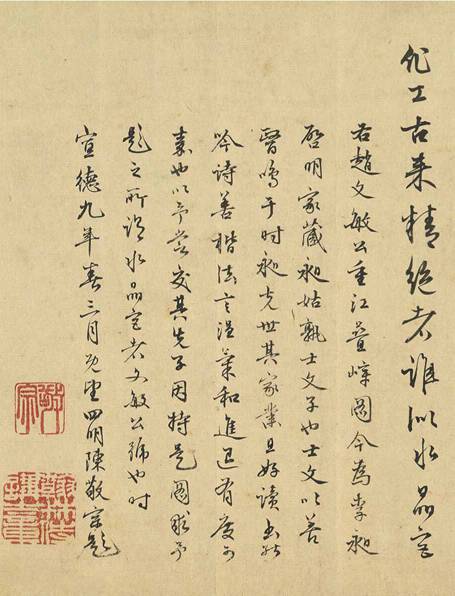 化工古来精絶者誰似水晶宫
右趙文敏公重江疊嶂圖今為李昶
啓明家藏昶姑孰士文子也士文以善
醫鳴于時昶克世其家業且好讀書能
吟詩善楷法言温氣和進退有度可
嘉也以予嘗交其先子因持是圖求予
題之所謂水晶宫者文敏公號也時
宣德九年春三月既望四明陳敬宗題
敬宗